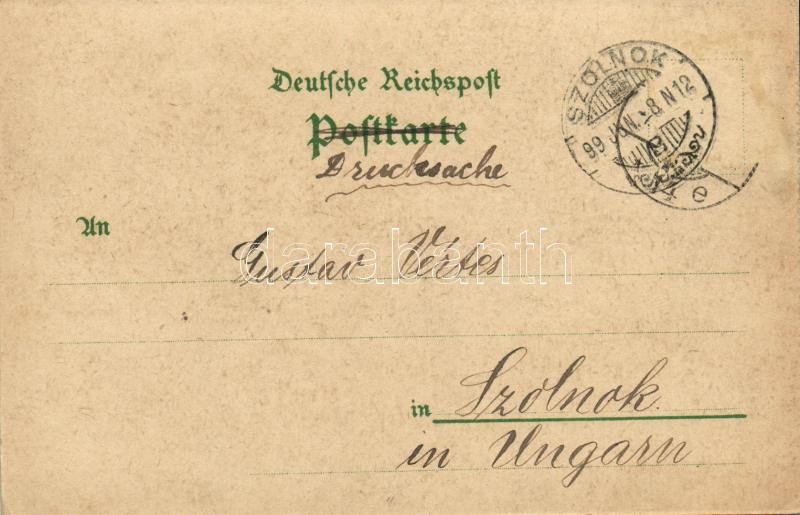 Deutsche Reichspost
Postkarte
Drucksache
SZOLNOK
99 JUN. -8 N12
An
Gustav Vértes
darabanth
in Szolnok
in Ungarn